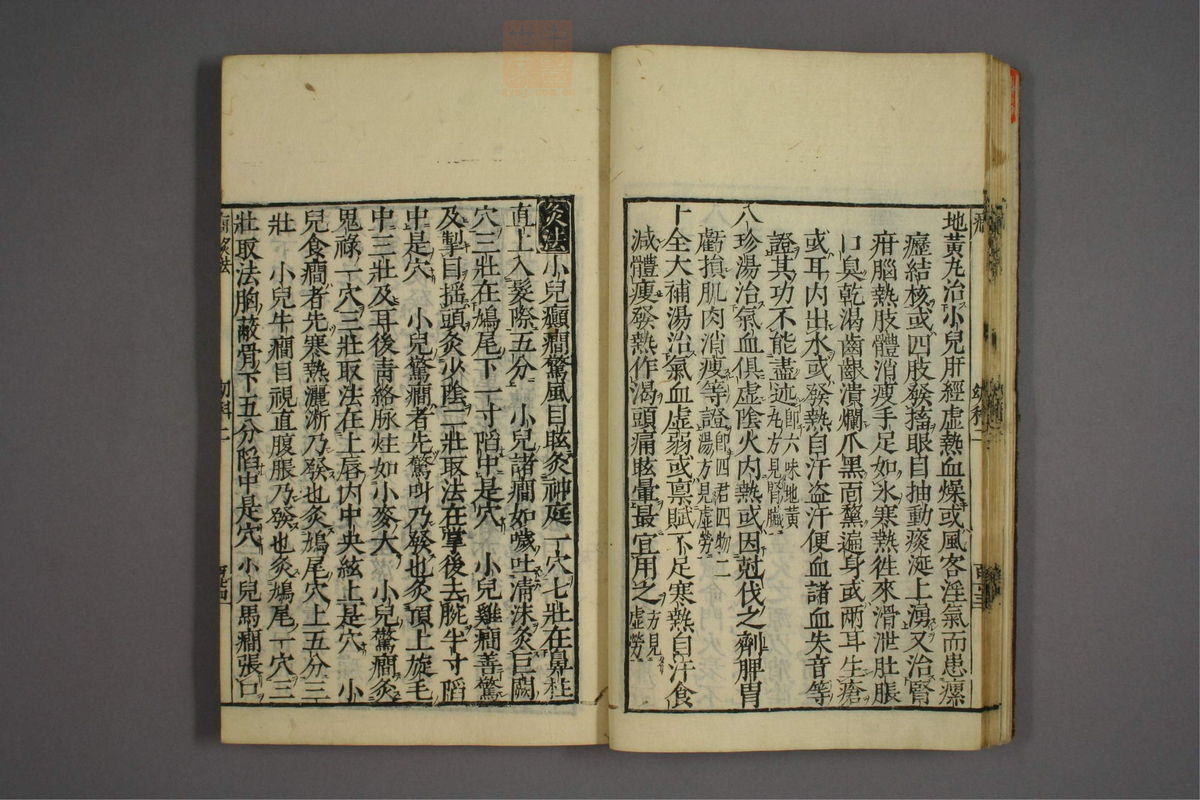 地黃丸治小兒肝經虛熱血燥或風客淫氣而患瘰
癧結核或四肢發搐眼目抽動痰涎上湧又治腎
疳腦熱肢體消瘦手足如氷寒熱徃來滑泄肚脹
口臭乾渴齒齦潰爛爪黑面黧遍身或兩耳生瘡
或耳内出水或發熱自汗盗汗便血諸血失音等
證其功不能盡述即六味地黃丸方見腎臟
八珍湯治氣血俱虛陰火内熱或因尅伐之劑脾胃
虧損肌肉消瘦等證即四君四物二湯方見虛勞
十全大補湯治氣血虛弱或禀賦不足寒熱自汗食
減體瘦發熱作渴頭痛眩暈最宜用之方見虛勞
灸法小兒癲癇驚風目眩灸神庭一穴七壯在鼻柱
直上入髮際五分 小兒諸癇如嘔吐清沫灸巨闕
穴三壯在鳩尾下一寸陷中是穴 小兒雞癇善驚
及掣目搖頭灸少陰二壯取法在掌後去腕半寸陷
中是穴 小兒驚癇者先驚叫乃發也灸頂上旋毛
中三壯及耳後青絡脉炷如小麥大 小兒驚癇灸
鬼祿一穴三壯取法在上唇内中央絃上是穴 小
兒食癇者先寒熱灑淅乃發也灸鳩尾穴上五分三
壯 小兒牛癇目視直腹脹乃發也灸鳩尾一穴三
壯取法胸蔽骨下五分陷中是穴 小兒馬癇張口